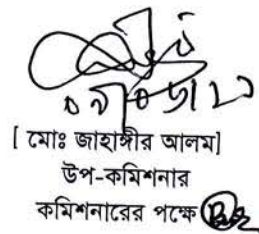 [ মোঃ জাহাঙ্গীর আলম]
উপ-কমিশনার
কমিশনারের পক্ষে